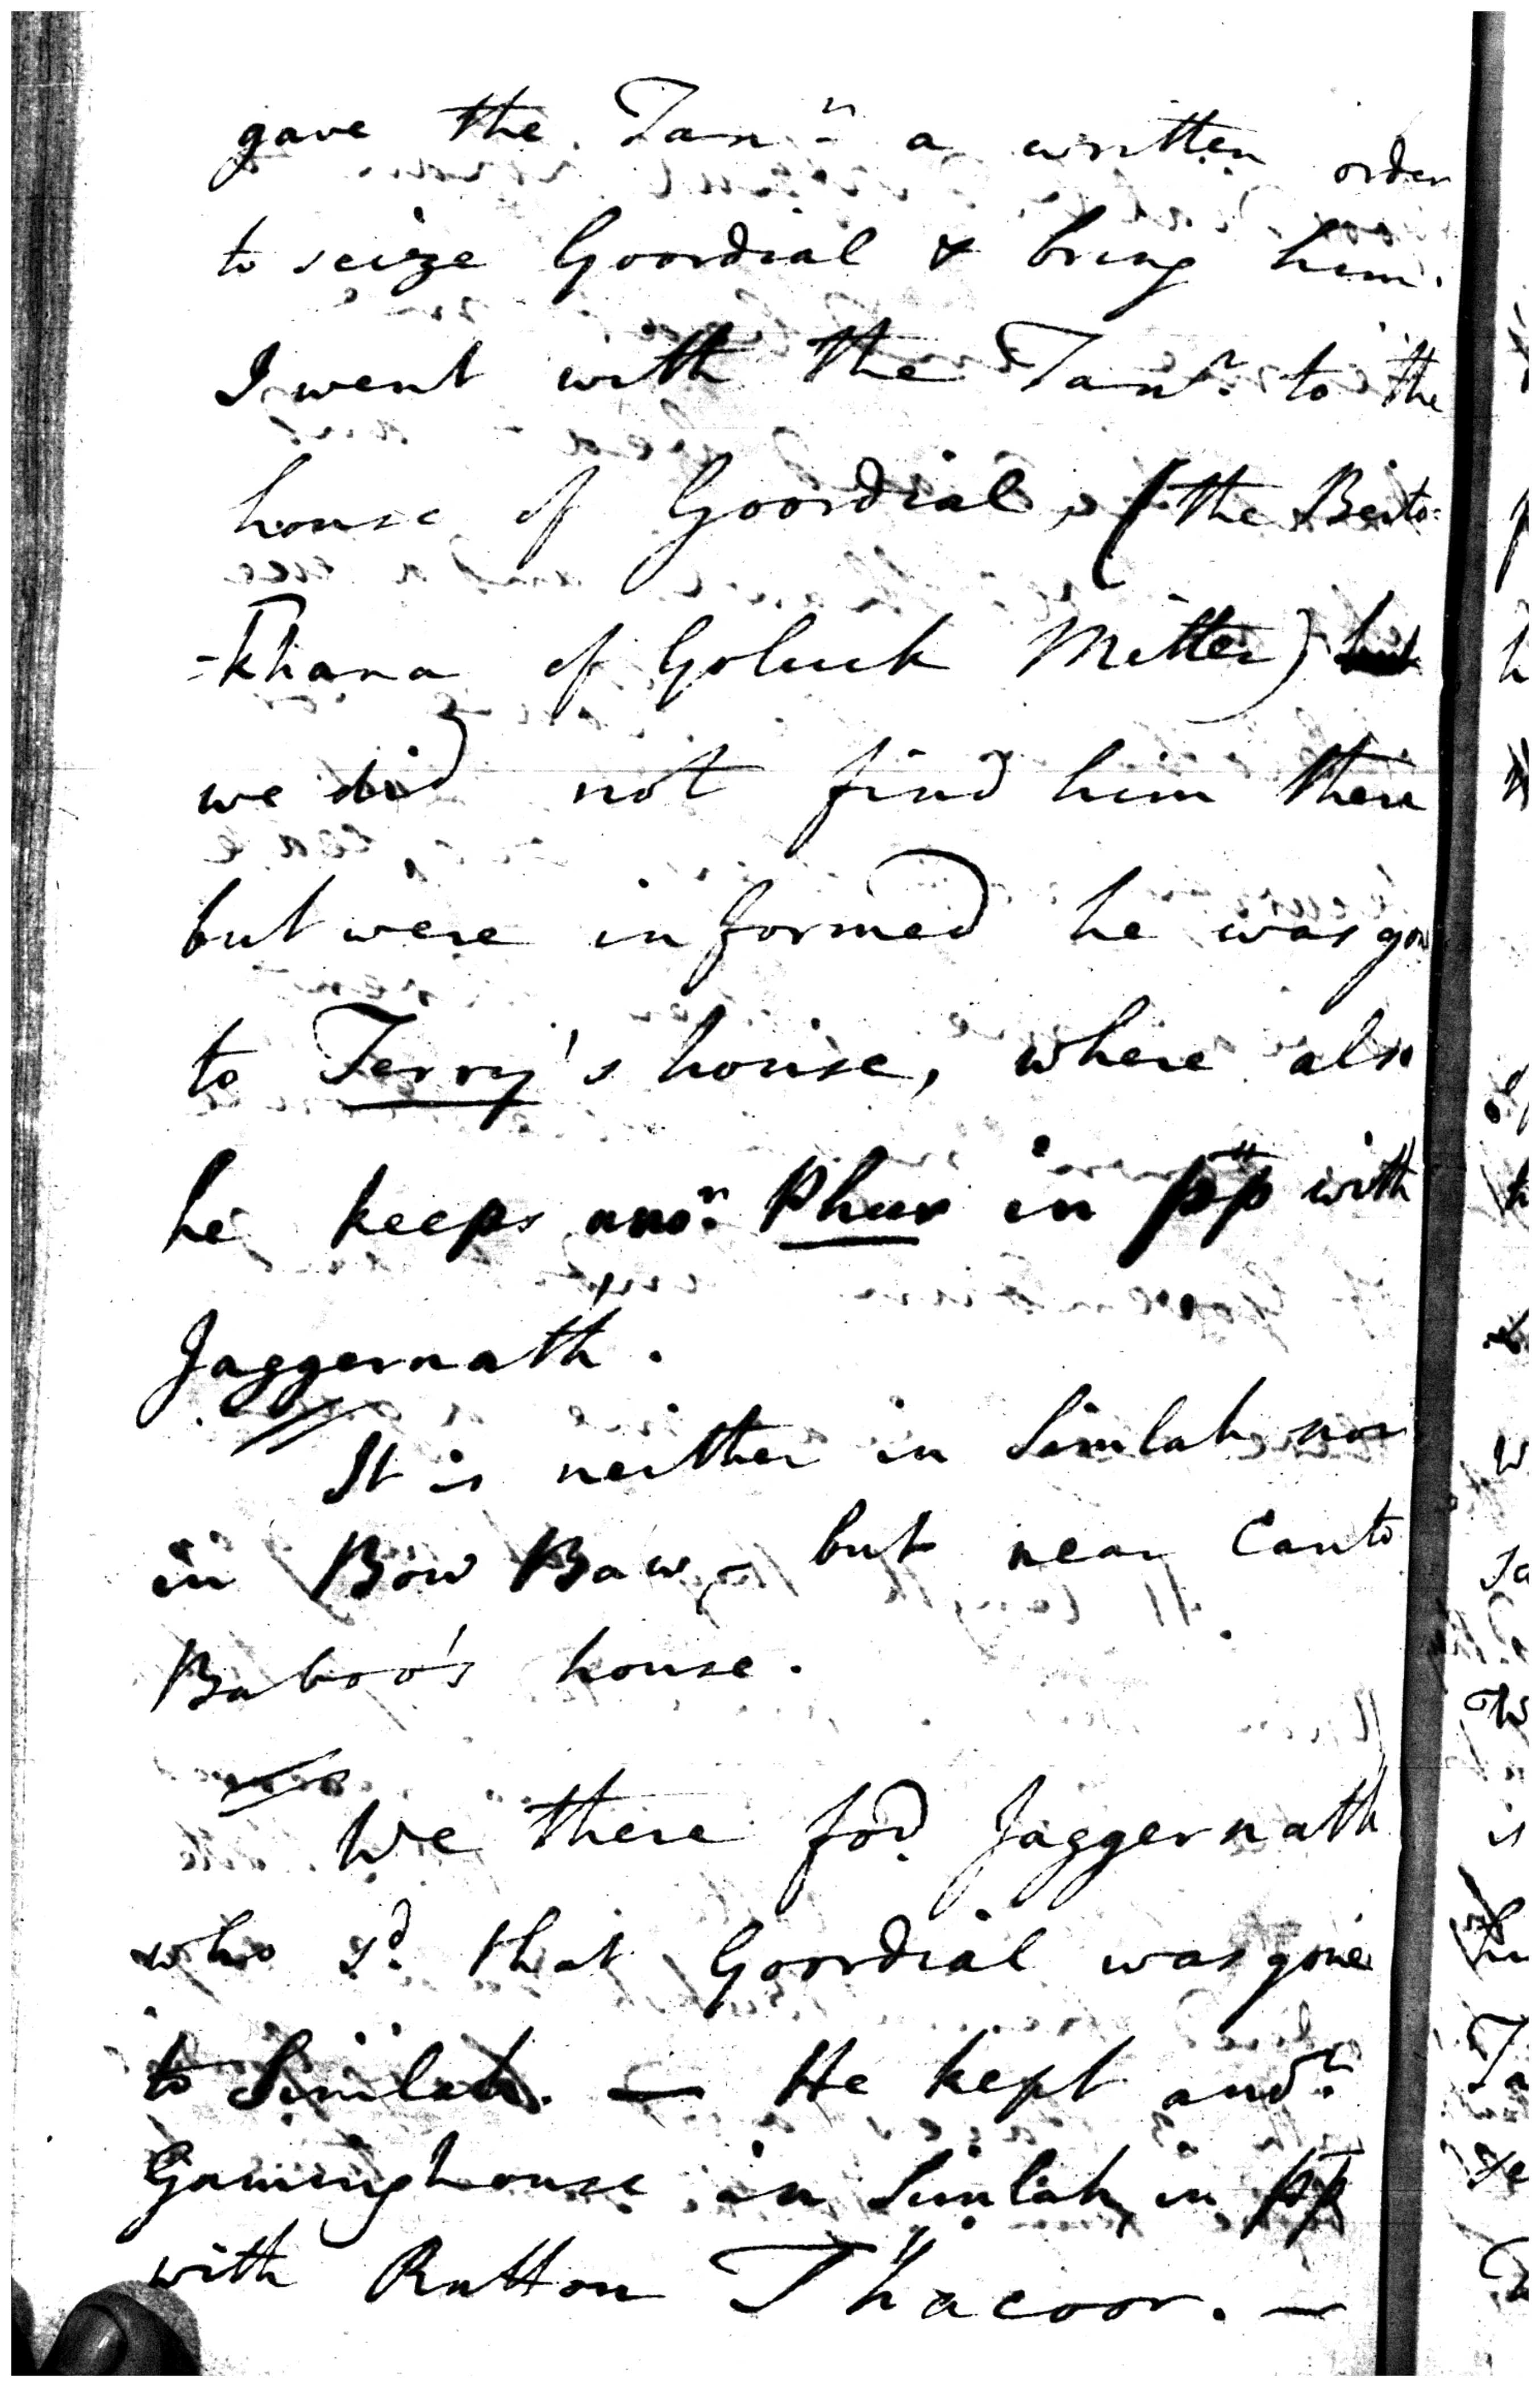 gave the Tanr. a written order
to seize Goordial & bring him.
I went with the Tanr. to the
house of Goordial, (the Beito=
=Khana of Goluck Mitter)
we did not find him there
but were informed he was gone
to Terry's house, where also
he keeps anor. Phur in pp with
Jaggernath.
It is neither in Simlah nor
in Bow Baw – but near Canto
Baboo's house.
We there fod. Jaggernath
who sd. that Goordial was gone
to Simlah. — He kept anor.
Gaminghouse in Simlah in pp
with Rutton Thacoor. —